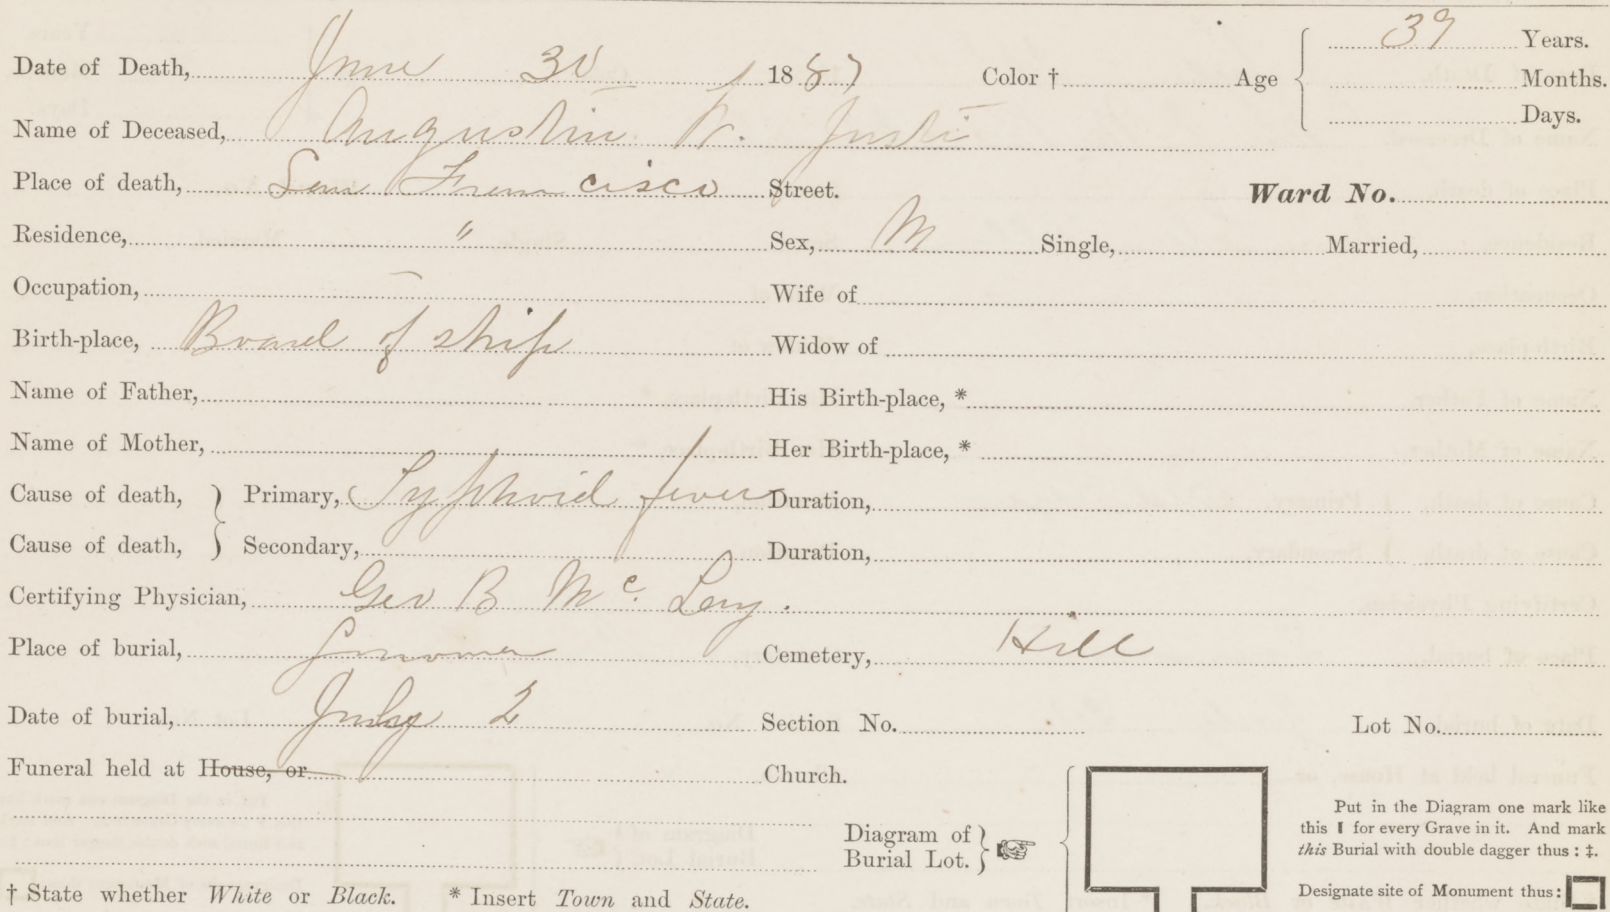 Date of Death, June 30 1887 Color † Age 39 Years.
Months.
Days.
Name of Deceased, Augustin K. Justi
Place of death, San Francisco Street. Ward No.
Residence, " Sex, M Single, Married,
Occupation, — Wife of
Birth-place, Board of ship Widow of
Name of Father, His Birth-place, *
Name of Mother, Her Birth-place, *
Cause of death, } Primary, Typhoid fever Duration,
Cause of death, } Secondary, Duration,
Certifying Physician, Geo B Mc. Leny.
Place of burial, Sonoma Cemetery, Hill
Date of burial, July 2 Section No. Lot No.
Funeral held at House, or Church.
Diagram of Burial Lot. }
Put in the Diagram one mark like
this I for every Grave in it. And mark
this Burial with double dagger thus : ‡.
Designate site of Monument thus:
† State whether White or Black. * Insert Town and State.